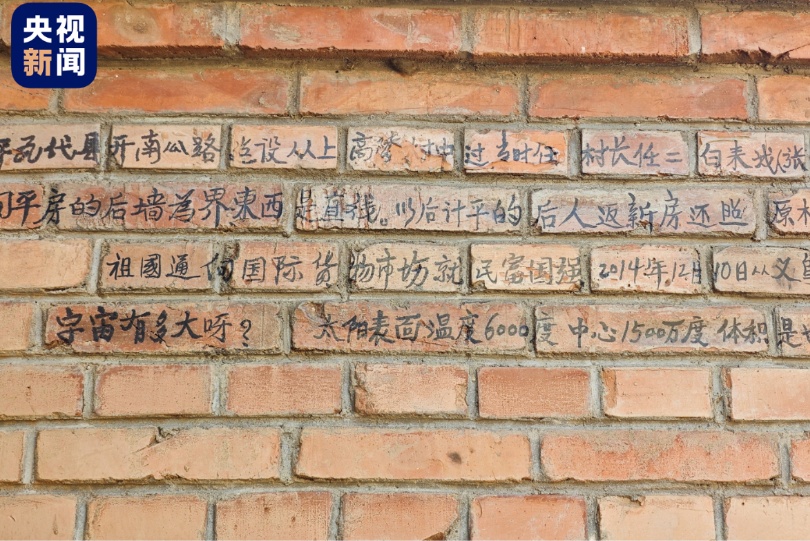 央视
新闻
县 开南公路 设从上 高 过 当时任 村长任二 白表
平房的后墙为界東西是直线。以后计平的后人返新房还照原
祖國通向国际货物市场就民富国强2014年12月10日从义
宇宙有多大呀? 太阳表面温度6000度 中心1500万度 体积是